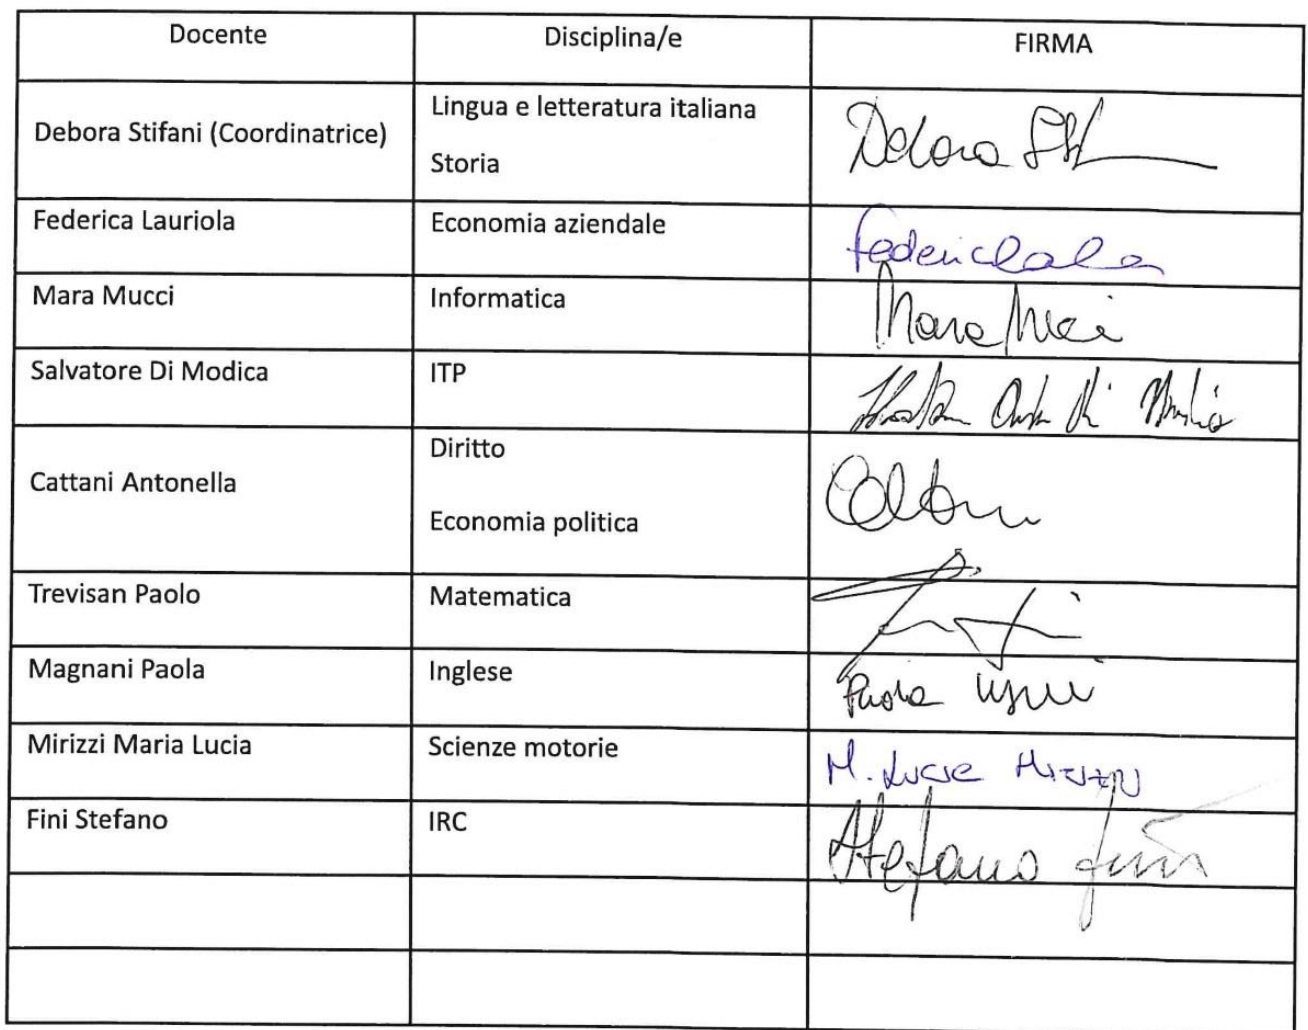 Docente Disciplina/e FIRMA
Debora Stifani (Coordinatrice)
Lingua e letteratura italiana
Storia
Debora
Federica Lauriola Economia aziendale
Mara Mucci Informatica Mara Mucci
Salvatore Di Modica ITP
Cattani Antonella
Diritto
Economia politica
Trevisan Paolo Matematica
Magnani Paola Inglese Paola
Mirizzi Maria Lucia Scienze motorie M. Lucia Mirizzi
Fini Stefano IRC Stefano Fini